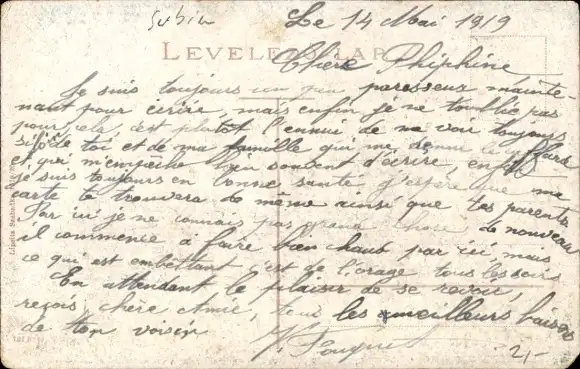 Subin
Le 14 Mai 1919
LEVELEZŐ-LAP
Chère Phiphine
Je suis toujours un peu paresseux mainte-
nant pour écrire, mais enfin je ne t'oublie pas
pour cela, c'est plutôt l'ennui de me voir toujours
si loin de toi et de ma famille qui me donne le
et qui m'empêche bien souvent d'écrire, enfin
je suis toujours en bonne santé j'espère que ma
carte te trouvera de même ainsi que tes parents
Par ici je ne connais pas grand chose de nouveau
il commence à faire bien chaud par ici mais
ce qui est embêtant c'est de l'orage tous les soirs
En attendant le plaisir de se revoir,
reçois, chère Amie, tous les meilleurs baisers
de ton voisin
2,-